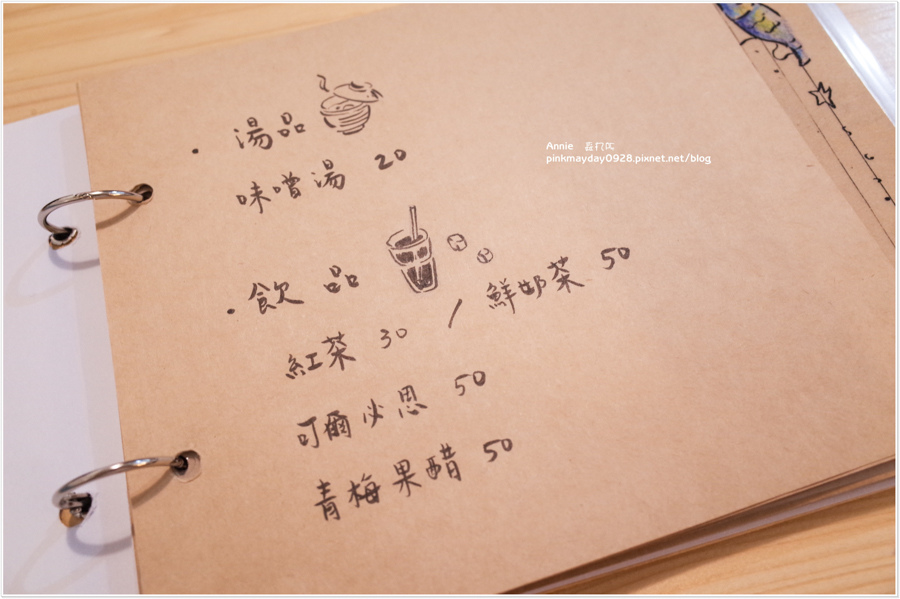 · 湯品
味噌湯 20
· 飲品
紅茶 30 / 鮮奶茶 50
可爾必思 50
青梅果醋 50
Annie
pinkmayday0928.pixnet.net/blog